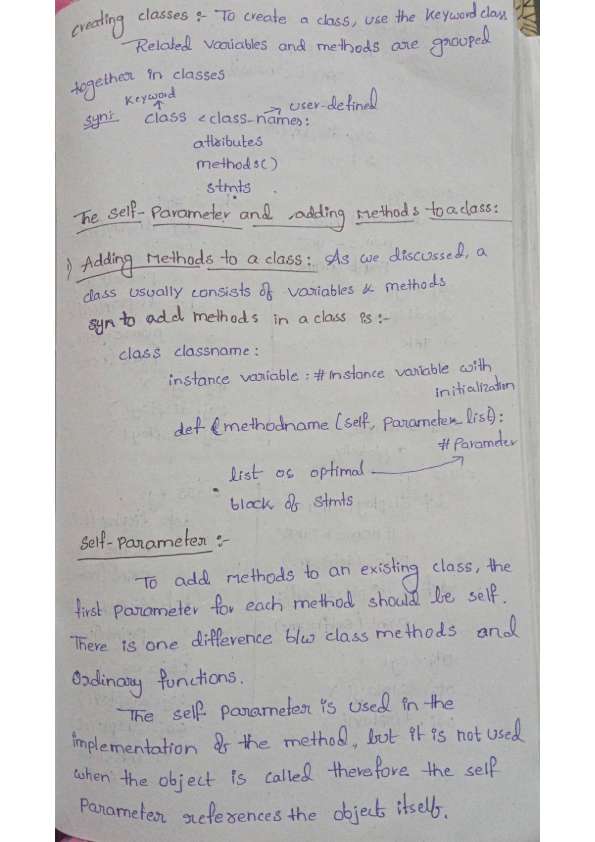 creating classes :- To create a class, use the keyword class.
Related variables and methods are grouped
together in classes
keyword
syn:- class <class-names: → user-defined
attributes
methods()
stmts
The self-parameter and adding methods to a class:
1) Adding methods to a class: As we discussed, a
class usually consists of variables & methods
syn to add methods in a class is :-
class classname:
instance variable : # instance variable with
initialization
def (methodname (self, parameter list):
# Parameter
list os optimal
block of stmts
Self-parameter :-
To add methods to an existing class, the
first parameter for each method should be self.
There is one difference b/w class methods and
ordinary functions.
The self parameter is used in the
implementation of the method, but it is not used
when the object is called therefore the self
Parameter references the object itself.